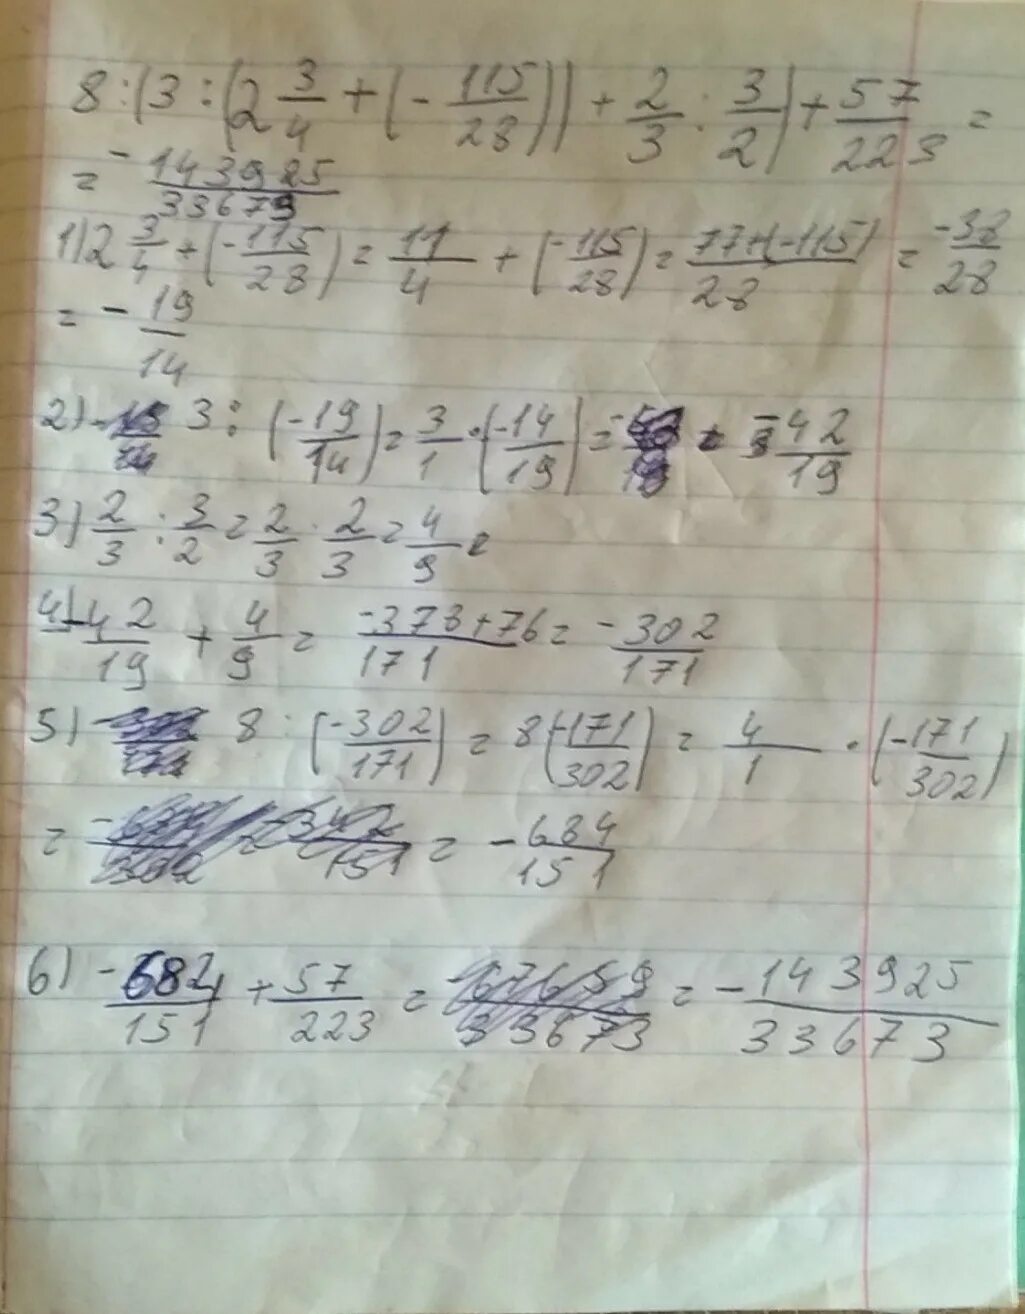 8 : (3 : (2 3/4 + (- 115/28)) + 2/3 : 3/2) + 57/223 =
= - 143925/33673
1) 2 3/4 + (-115/28) = 11/4 + (-115/28) = 77+(-115)/28 = -38/28
= - 19/14
2) 3 : (-19/14) = 3/1 · (-14/19) = -42/19
3) 2/3 : 3/2 = 2/3 · 2/3 = 4/9
4) -42/19 + 4/9 = -378+76/171 = -302/171
5) 8 : (-302/171) = 8(-171/302) = 4/1 · (-171/302)
= -684/151
6) -684/151 + 57/223 = -143925/33673